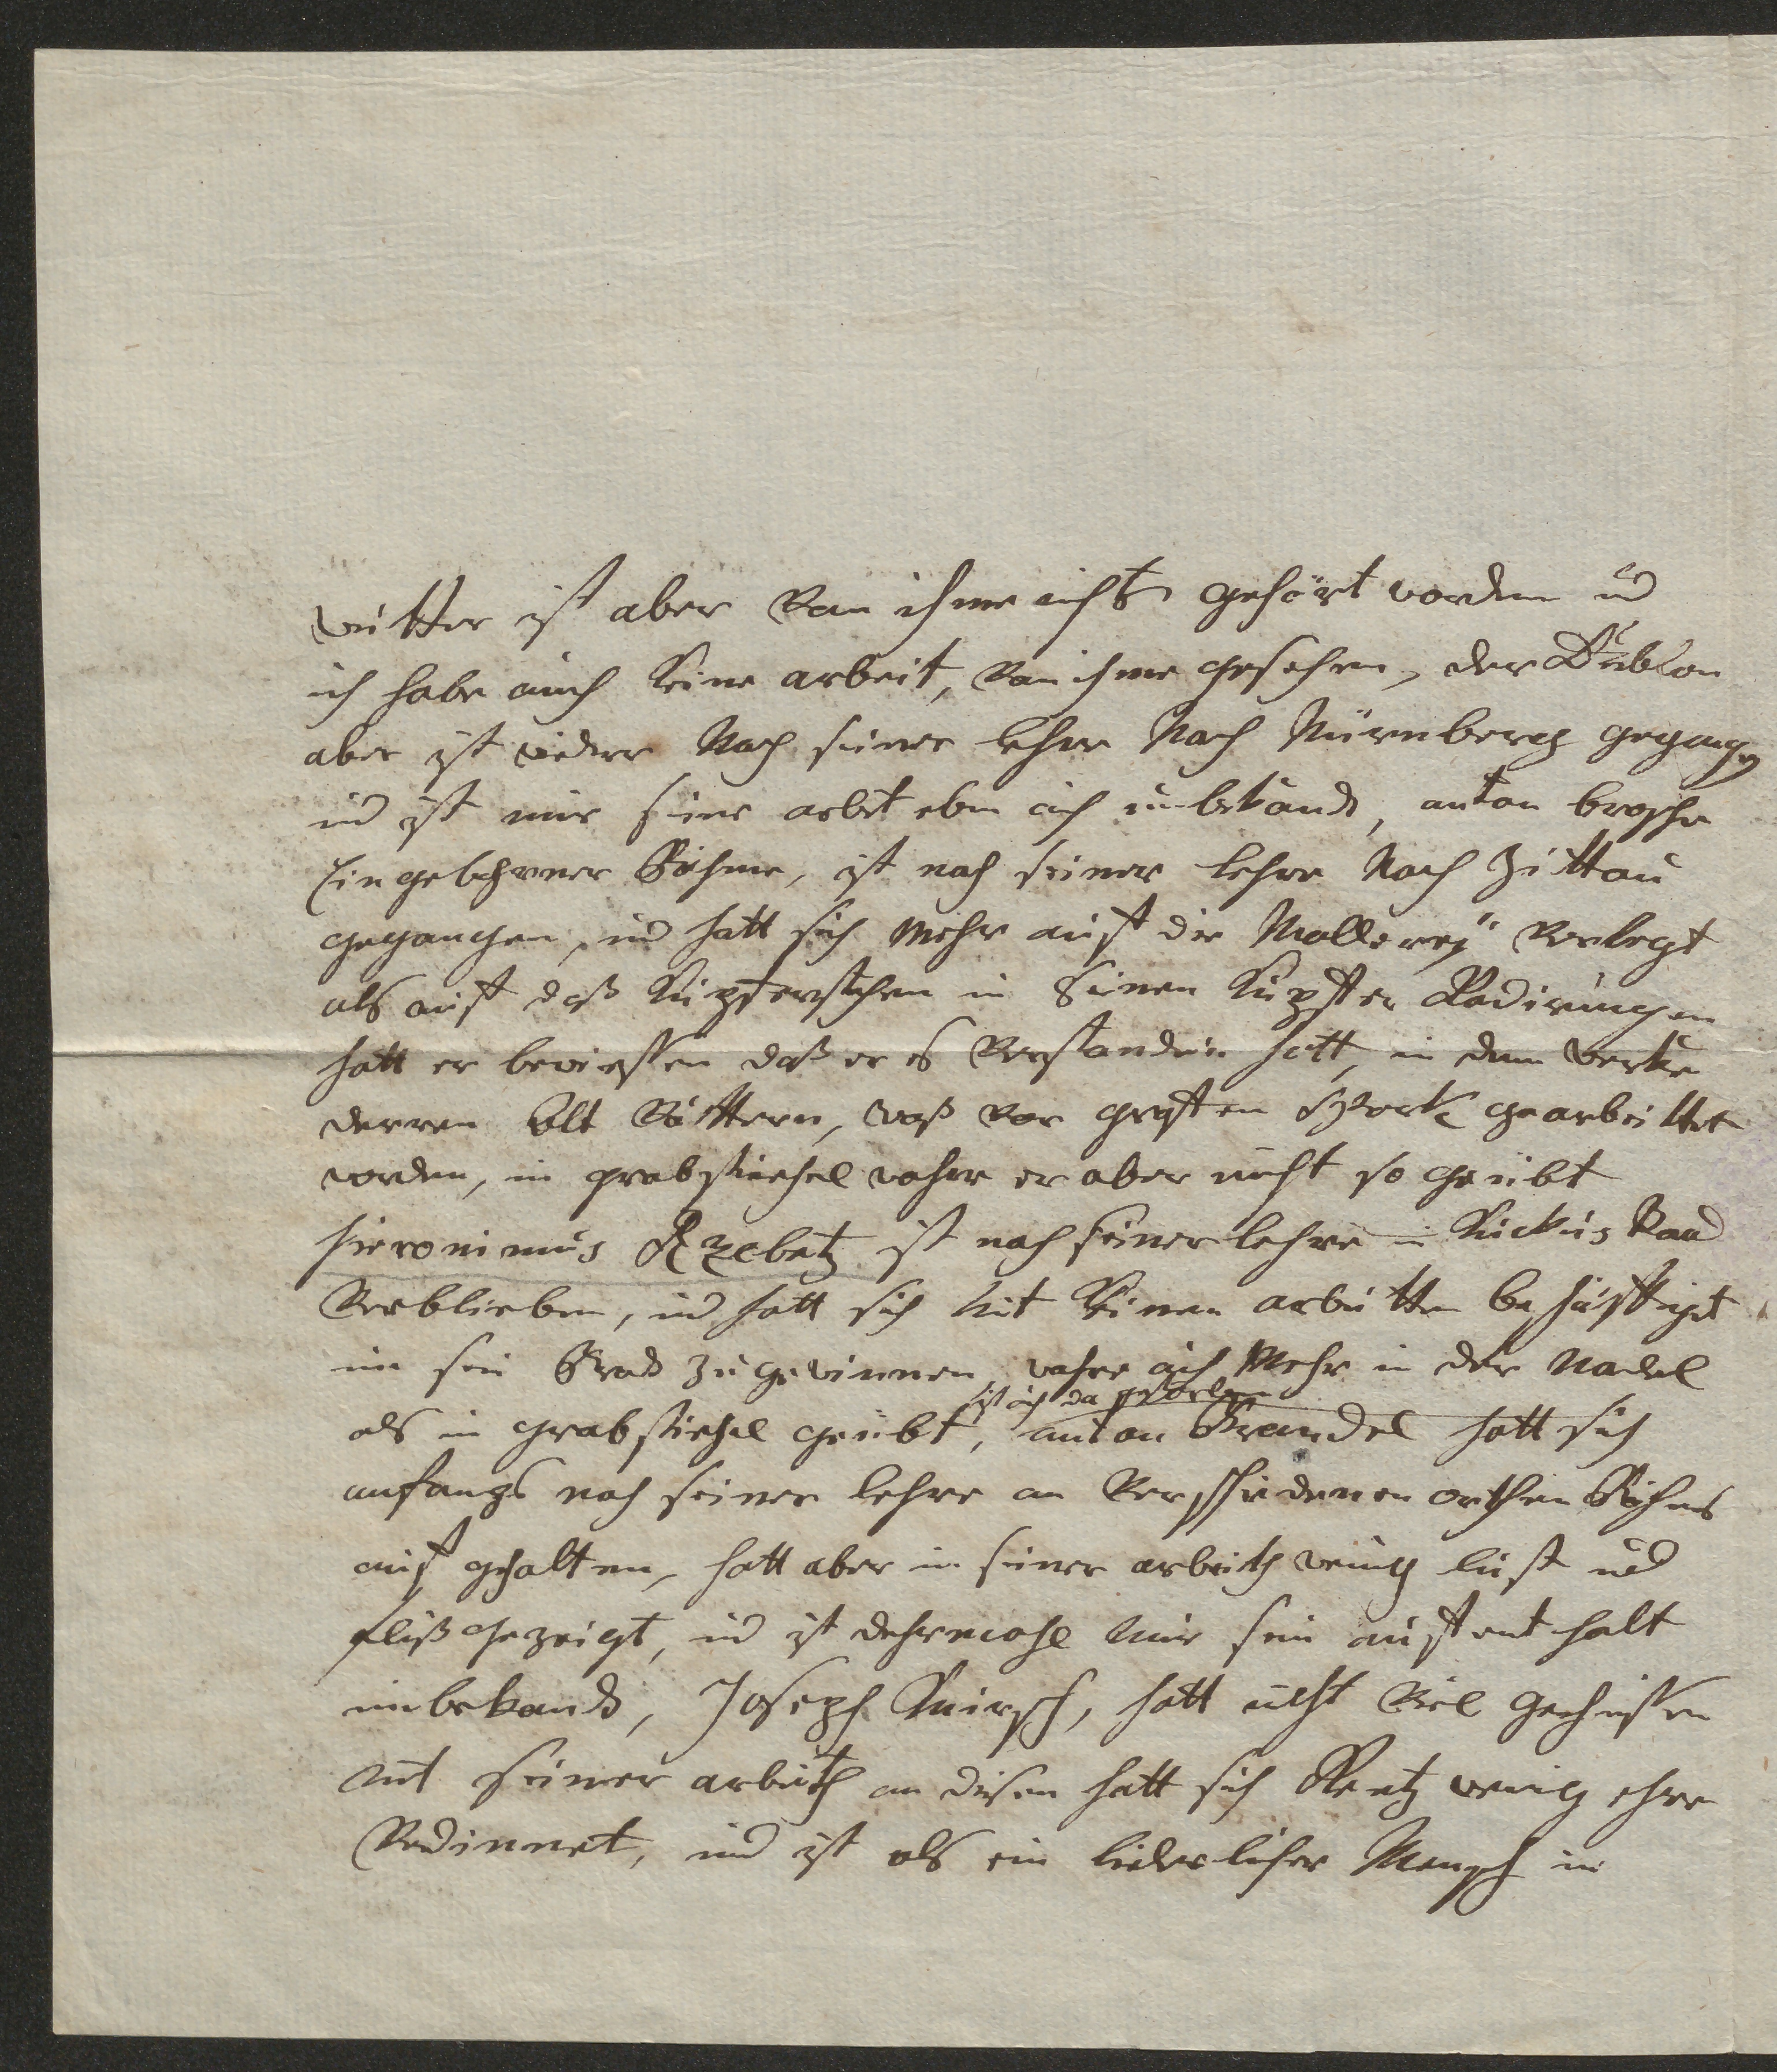 weitter ist aber Von ihme nichts gehört worden ud
ich habe auch Keine arbeit, Von ihme gesehen, der Dublon
aber ist wider Nach seiner lehre Nach Nürnberg gegangen
ud ist mir seine arbeit eben auch unbekand, anton brosche
Ein gebohrner Böhme, ist nach seiner lehre Nach Zittau
gegangen, ud hatt sich mehr auf die Mallerey Verlegt
als auf daß Kupferstechen in Seinen Kupfer Radirungen
hatt er bewiessen daß er es Verstanden hatt, in dem werke
derren Alt Vättern, waß Vor grafen Spork gearbeittet
worden, in grabstichel wahre er aber nicht so geübt
Hieronimus Rzebetz ist nach seiner lehre in Kuckus Baad
Verblieben, ud hatt sich mit Kleinen arbeitten beschäftiget
um sein Brod zu gewinnen, wahre auch Mehr in der Nadel
ist auch da gestorben
als in grabstichel geübt, anton Brendel hatt sich
anfangs nach seiner lehre an Verschiedenen orthen Böhmes
auf gehalten, hatt aber in seiner arbeith wenig lust ud
fleiß gezeigt, ud ist dehrmahl mir sein aufenthalt
unbekand, Joseph Kirsch, hatt nicht Viel geheissen
mit seiner arbeith an disen hatt sich Rentz wenig ehre
Verdinnet, ud ist als ein liderlicher Mensch in